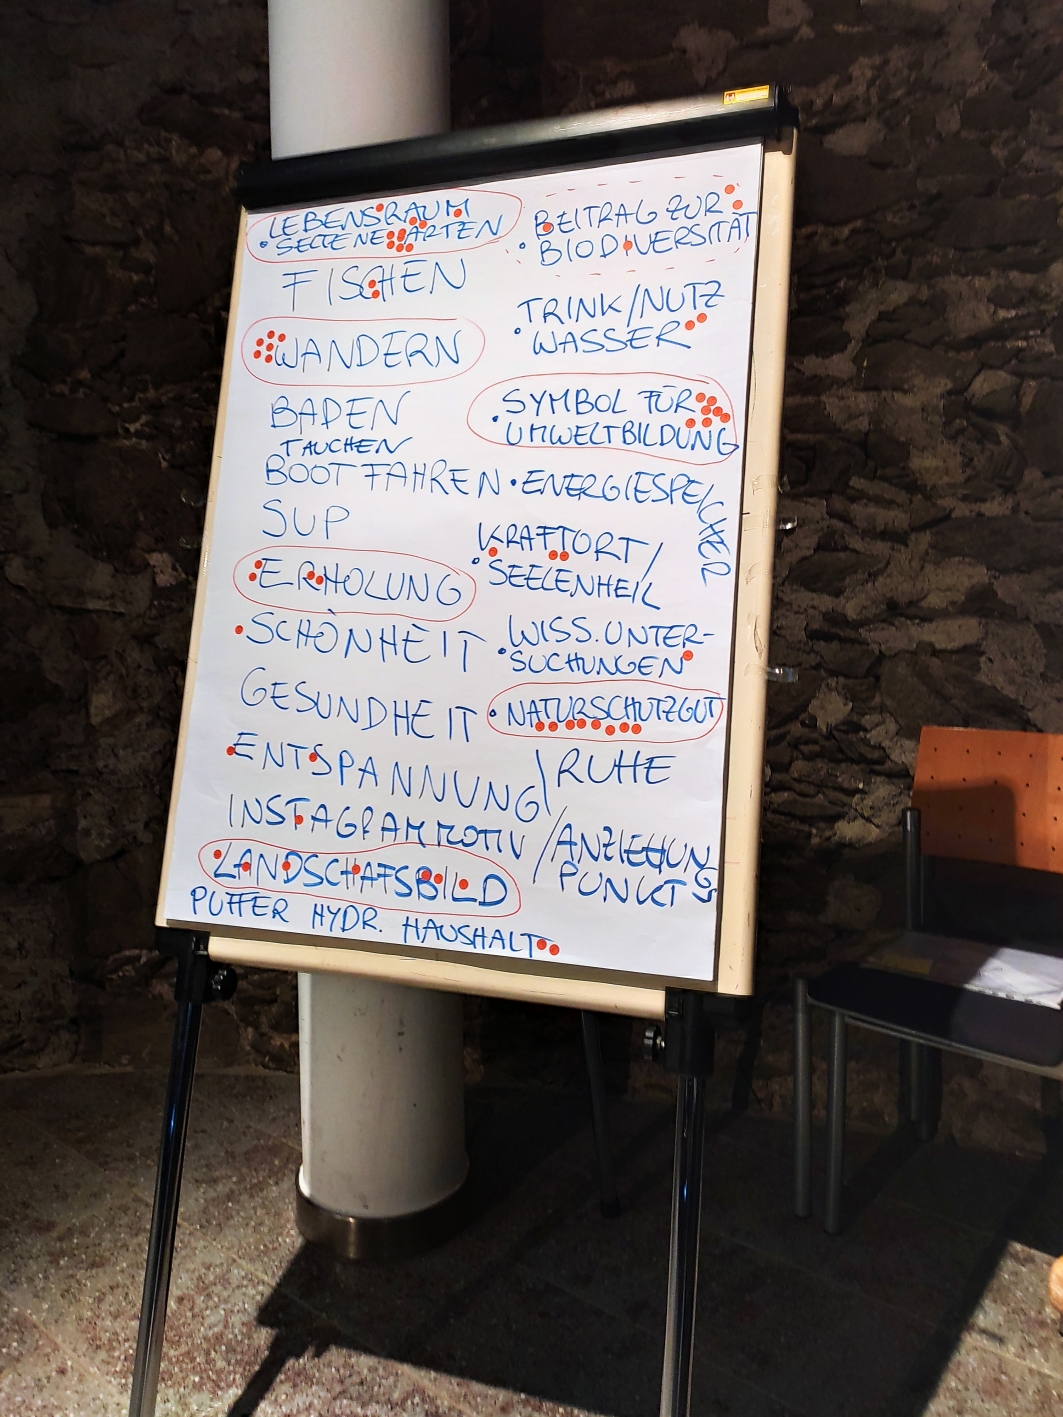 LEBENSRAUM
• SELTENE ARTEN
FISCHEN
WANDERN
BADEN
TAUCHEN
BOOTFAHREN
SUP
ERHOLUNG
SCHÖNHEIT
GESUNDHEIT
ENTSPANNUNG \ RUHE
INSTAGRAMMOTIV / ANZIEHUNGS
PUNKT
LANDSCHAFSBILD
PUFFER HYDR. HAUSHALT
BEITRAG ZUR
• BIODIVERSITÄT
TRINK/NUTZ
• WASSER
• SYMBOL FÜR
UMWELTBILDUNG
• ENERGIESPEICHER
KRAFTORT /
• SEELENHEIL
• WISS. UNTER-
SUCHUNGEN
• NATURSCHUTZGUT